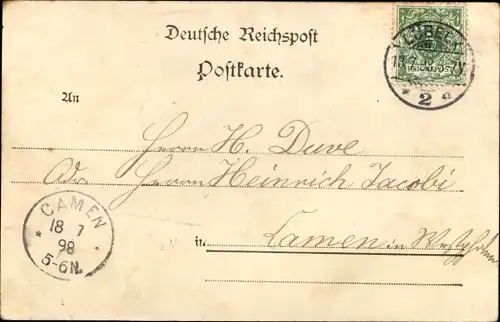 Deutsche Reichspost
Postkarte.
An
Herrn H. Duve
Adr. Herrn Heinrich Jacobi
in Camen in Westfalen
LÜBECK
* 2 a
CAMEN
18 7
98
5-6N.